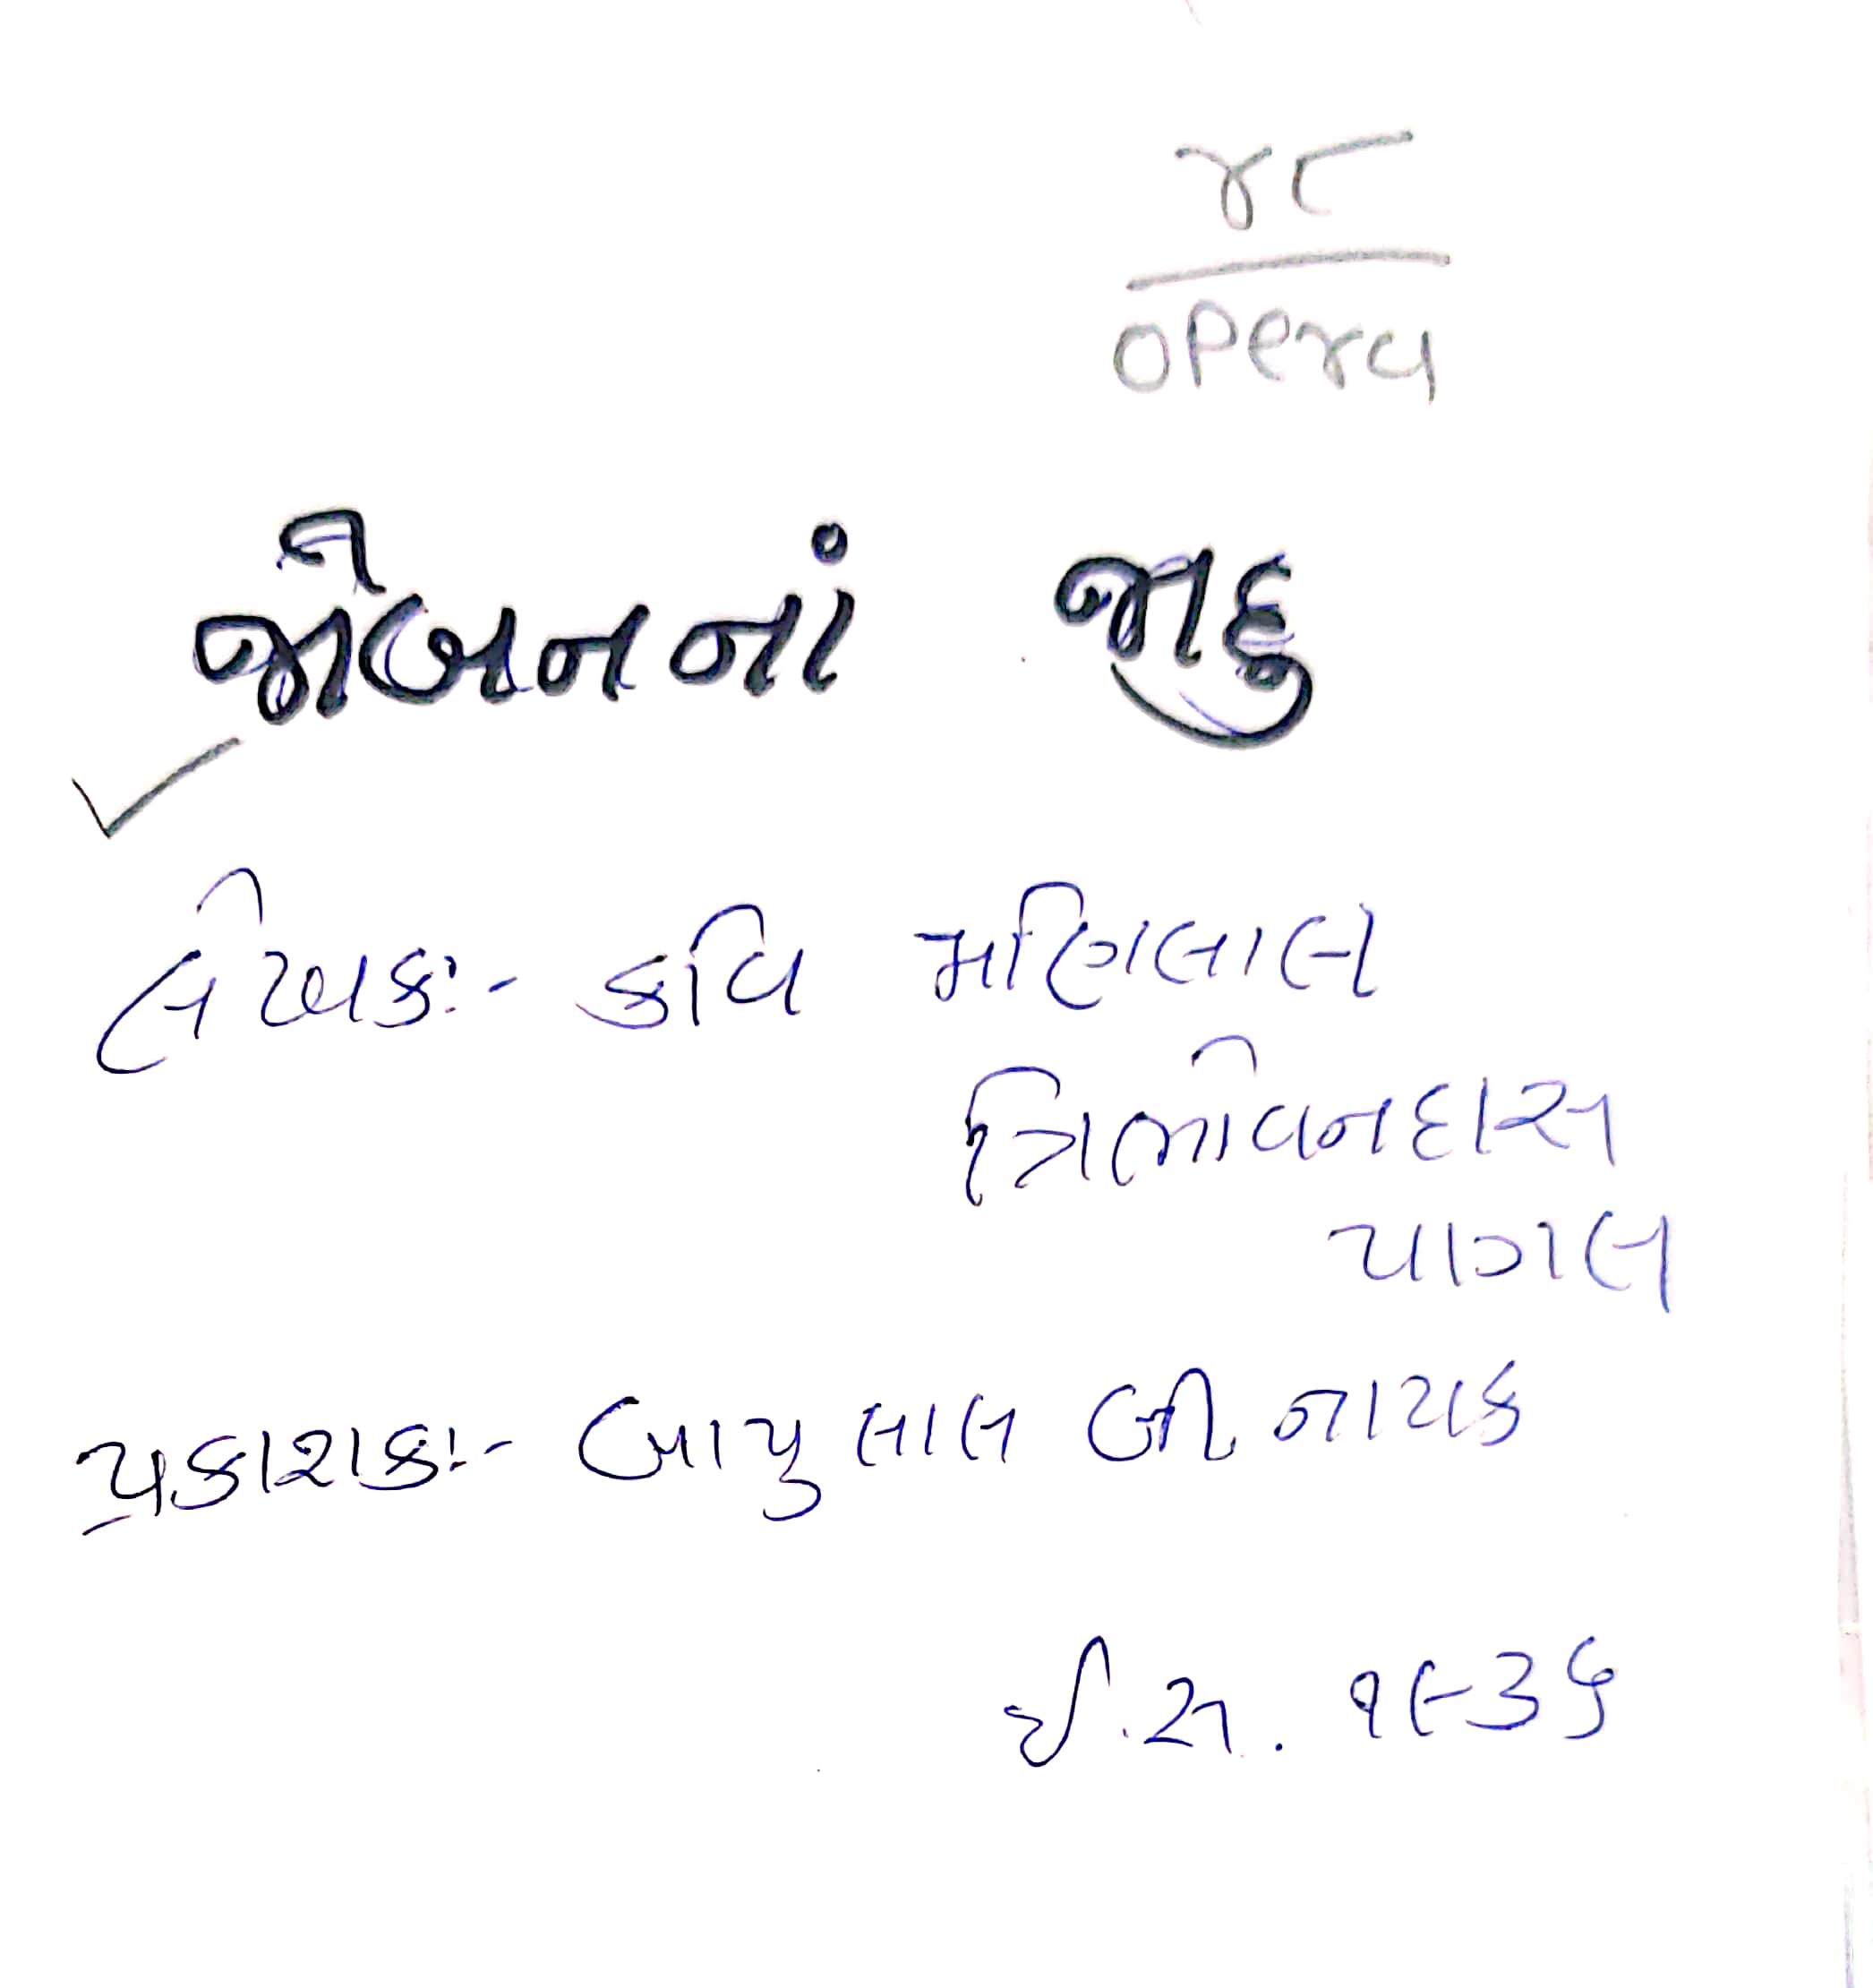 ૪૮
opera
જોબનનાં જાદુ
લેખકઃ- કવિ મણિલાલ
ત્રિભોવનદાસ
પાગલ
પ્રકાશકઃ- બાપુલાલ બી નાયક
ઈ.સ. ૧૯૩૬